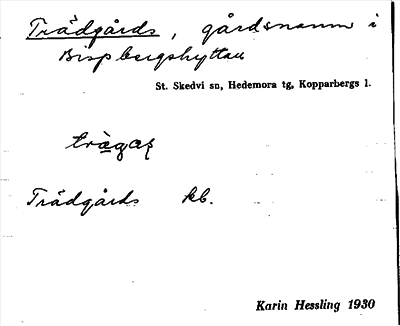 Trädgårds, gårdsnamn i
Bispbergshyttan
St. Skedvi sn, Hedemora tg, Kopparbergs l.
Trädgårds kb.
Karin Hessling 1930